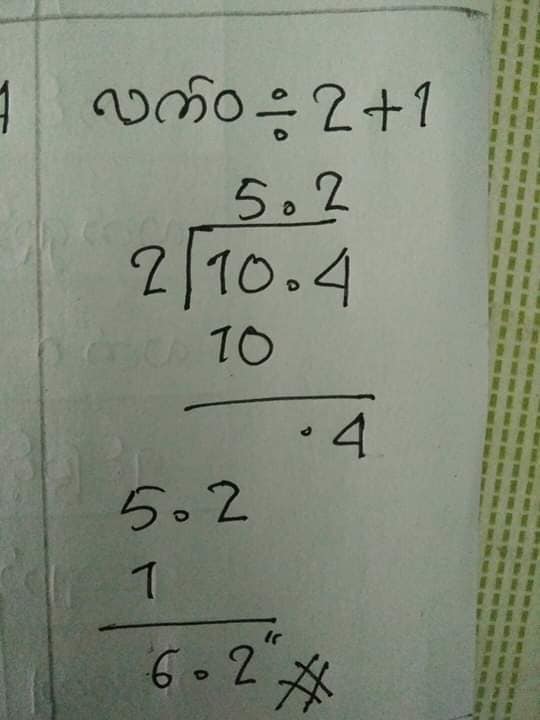 လက်ဝ ÷ 2 + 1
5.2
2 10.4
10
.4
5.2
1
6.2" #